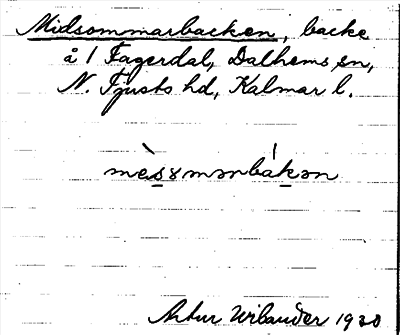 Midsommarbacken, backe
å 1 Fagerdal, Dalhems sn,
N. Tjusts hd, Kalmar l.
mèsȣmərbákən
Artur Wilander 1930